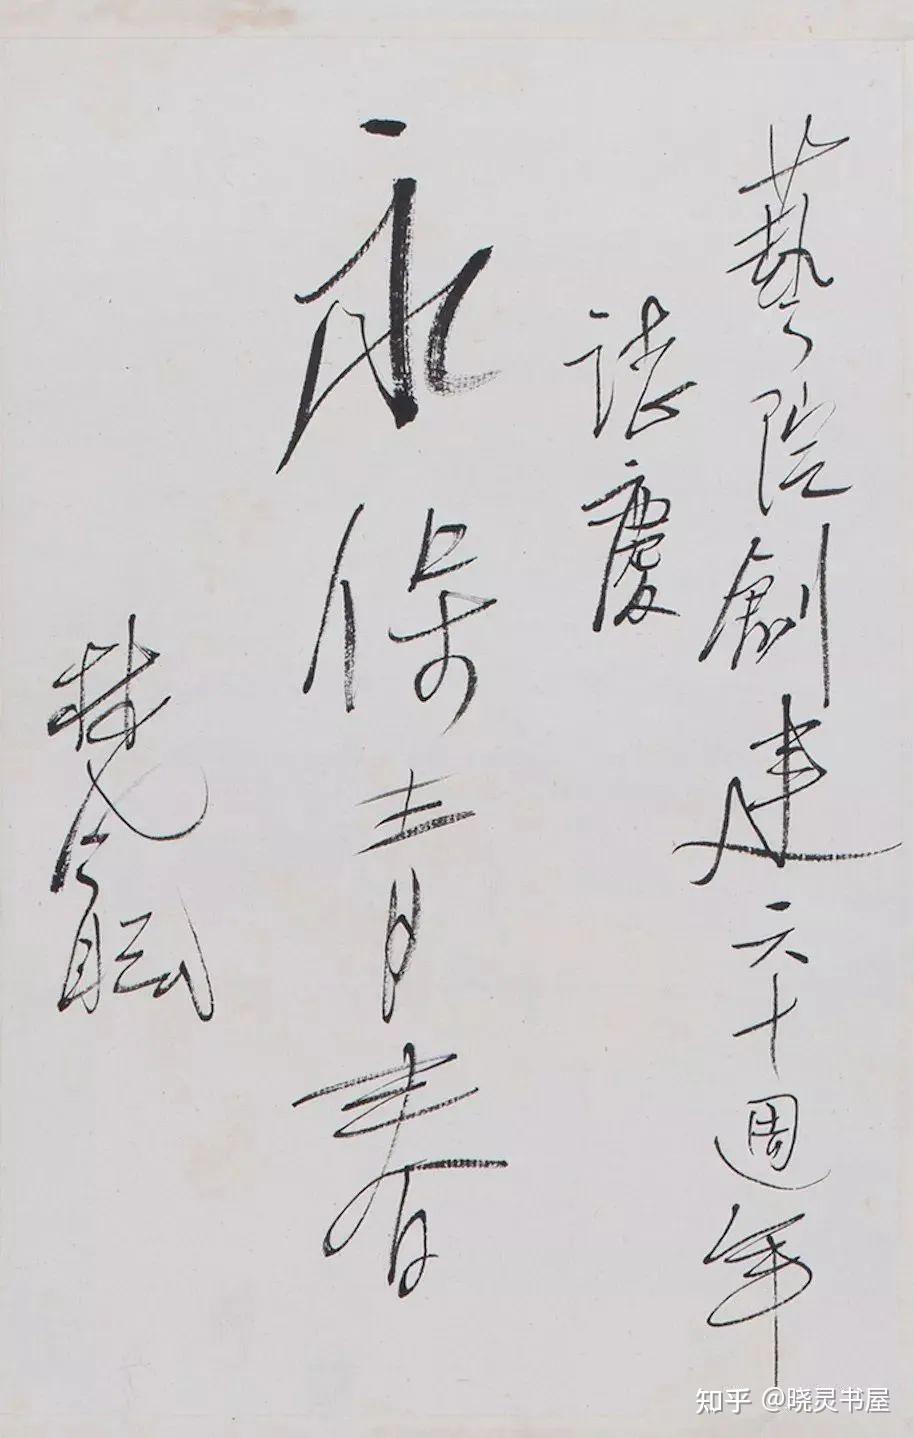 藝院創建六十週年
誌慶
永保青春
林風眠
知乎 @晓灵书屋